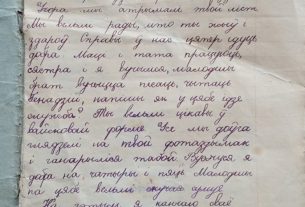 Учора мы атрымалі твой ліст
Мы вельмі рады, што ты жывы і
здароў Справы ў нас цяпер ідуць
добра Маці і тата працуюць,
сястра і я вучымся, малодшы
брат вучыцца пісаць, чытаць
Генадзій, напішы як у цябе ідзе
служба? Ты вельмі цікавы ў
вайсковай форме Усе мы доўга
глядзелі на твой фотаздымак
і ганарымся табой Вучуся я
на чатыры і пяць Малодшы
па цябе вельмі сумуе
На гэтым я канчаю сваё